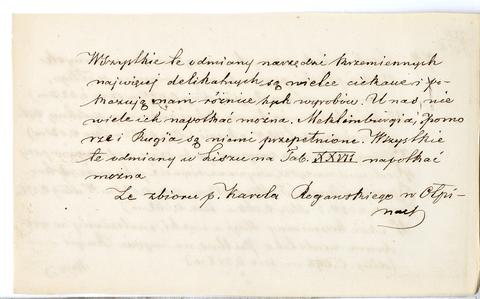 Wszystkie te odmiany narzędzi krzemiennych
najwięcej delikatnych są wielce ciekawe i po-
kazują nam różnice tych wyrobów. U nas nie
wiele ich napotkać można. Meklemburgia, Pomo
rze i Rugia są njemi przepełnione. Wszystkie
te odmiany w Liszu na Tab. XXVII napotkać
można
Ze zbioru p. Karola Rogawskiego w Ołpi-
nach